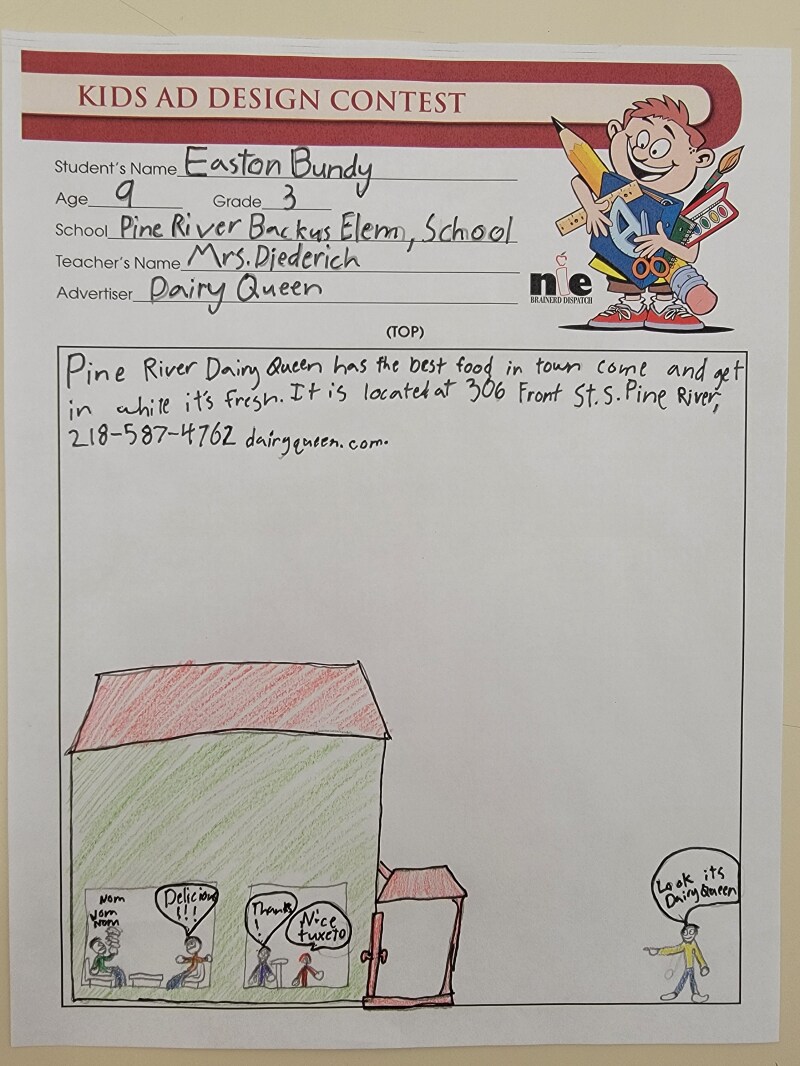 KIDS AD DESIGN CONTEST
Student's Name Easton Bundy
Age 9 Grade 3
School Pine River Backus Elem, School
Teacher's Name Mrs. Diederich
Advertiser Dairy Queen
nie
BRAINERD DISPATCH
(TOP)
Pine River Dairy Queen has the best food in town come and get
in while it's fresh. It is located at 306 Front St. S. Pine River,
218-587-4762 dairyqueen.com.
Nom
Nom
Nom
Delicious
!!!
Thanks
!
Nice
tuxeto
Look its
Dairy Queen